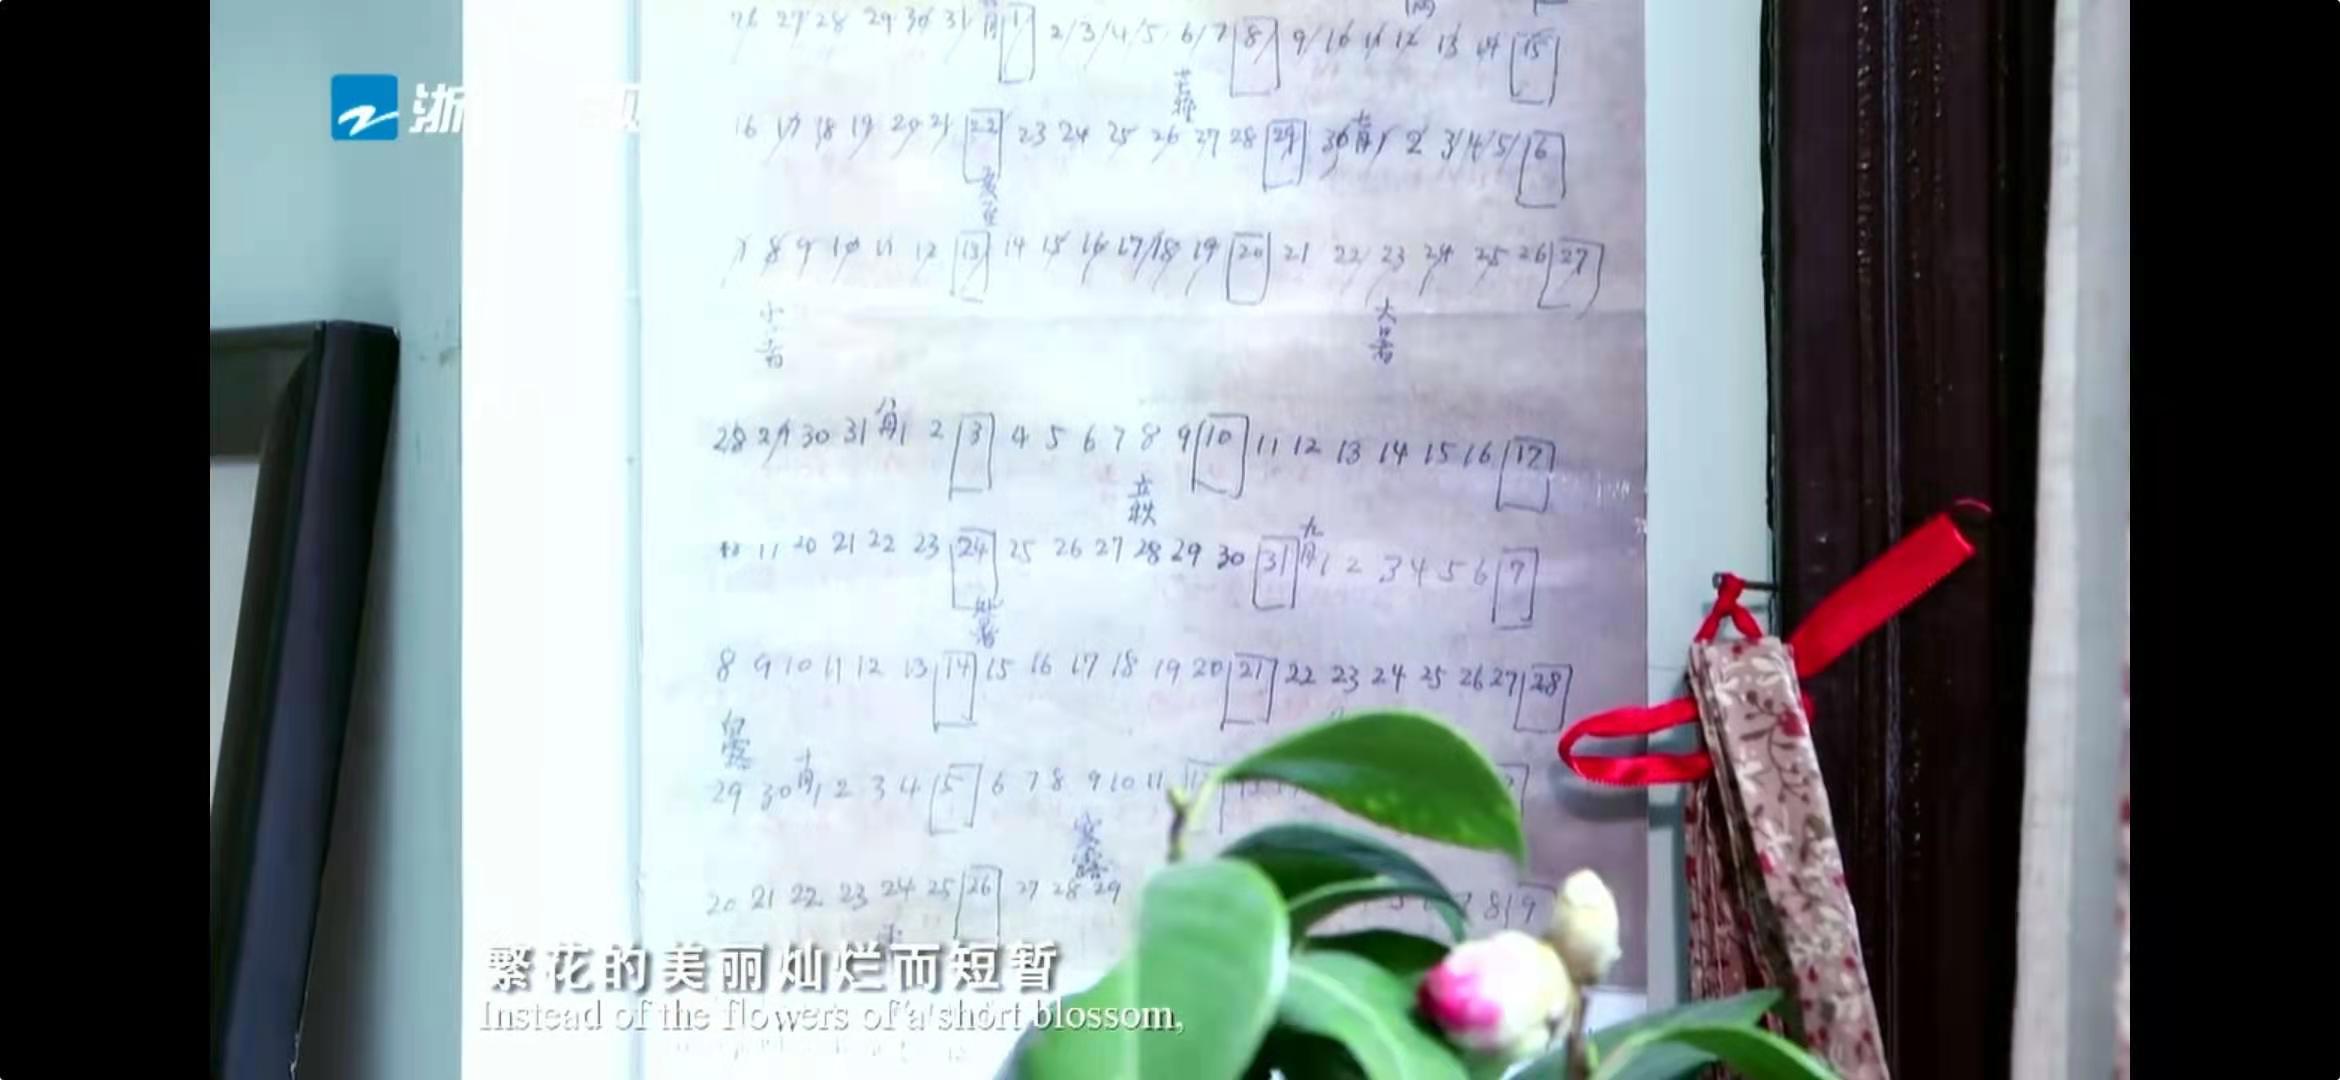 26 27 28 29 30 31 六月 1 2 3 4 5 6 7 8 9 10 11 12 13 14 15
芒种
浙 视
16 17 18 19 20 21 22 23 24 25 26 27 28 29 30 七月 1 2 3 4 5 6
夏至
7 8 9 10 11 12 13 14 15 16 17 18 19 20 21 22 23 24 25 26 27
小暑 大暑
28 29 30 31 八月 1 2 3 4 5 6 7 8 9 10 11 12 13 14 15 16 17
立秋
20 21 22 23 24 25 26 27 28 29 30 31 九月 1 2 3 4 5 6 7
处暑
8 9 10 11 12 13 14 15 16 17 18 19 20 21 22 23 24 25 26 27 28
白露
29 30 十月 1 2 3 4 5 6 7 8 9 10 11
寒露
20 21 22 23 24 25 26 27 28 29 8 9
繁花的美丽灿烂而短暂
Instead of the flowers of a short blossom,